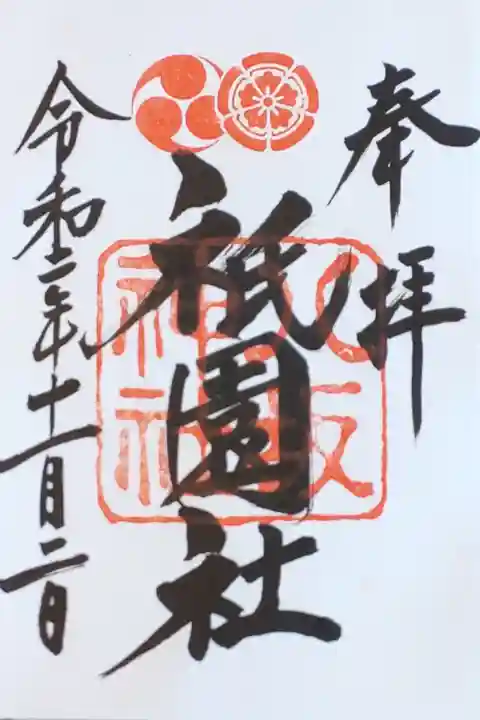 奉拝
祇園社
八坂
神社
令和二年十一月二日